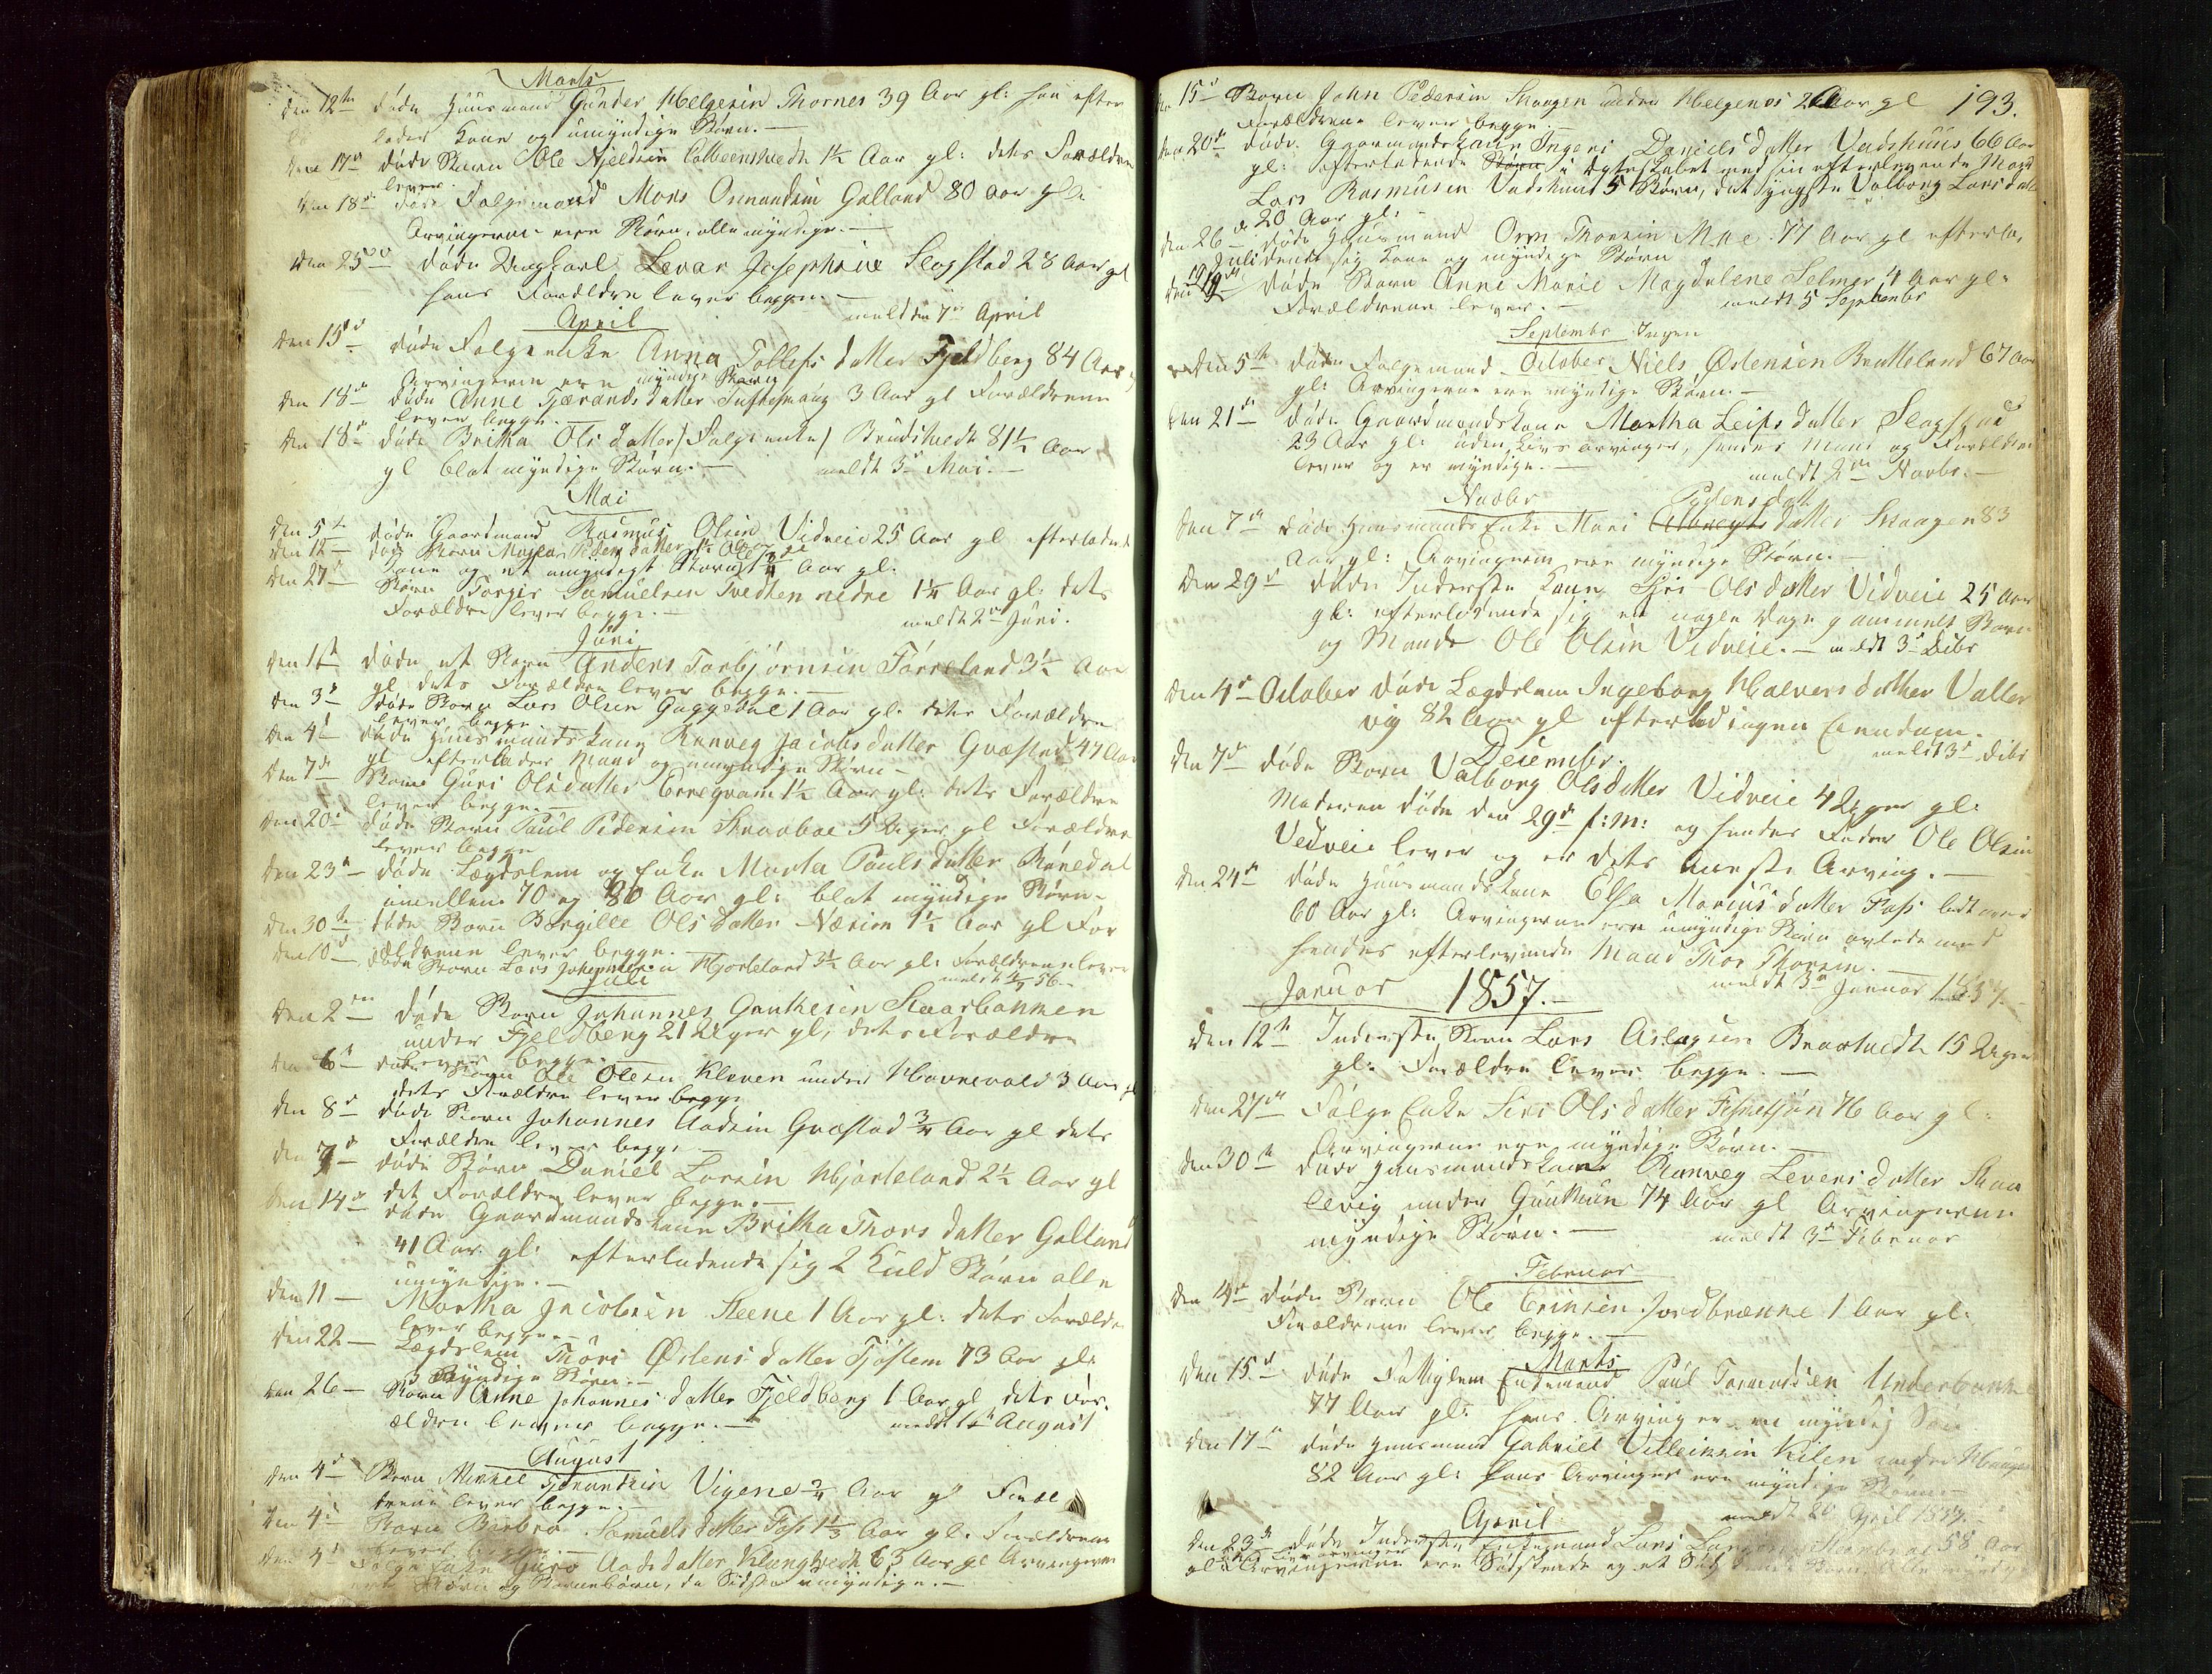 Marts
den 12te døde Huusmand Gunder Helgesen Thornes 39 Aar gl: han efter
lader Kone og umyndige Børn.
den 17de døde Barn Ole Kjeldsen 1½ Aar gl: dets Forældre
lever.
den 18de døde Folgemand Mons Osmundsen Galland 80 Aar gl:
Arvingerne ere Børn, alle myndige.
den 25de døde Ungkarl Levar Josephsen Slogstad 28 Aar gl
hans Forældre lever begge.
meldt den 7de April
April
den 15de døde Folgeenke Anna Tollefsdatter Fjeldberg 84 Aar
Arvingerne ere myndige Børn
den 18de døde Anne Tjærandsdatter 3 Aar gl Forældrene
lever begge.
den 18de døde Britha Olsdatter (Folgeenke) Brudstvedt 81½ Aar
gl blot myndige Børn. meldt 3de Mai.
Mai
den 5te døde Gaardmand Rasmus Olsen Vidveie 25 Aar gl efterladende
den 12 døde Barn
Kone og et umyndigt Barn ¾ Aar gl.
den 27de Barn Torger Samuelsen Tvedten nedre 1¼ Aar gl: dets
Forældre lever begge. meldt 2den Juni.
Juni
den 1ste døde et Barn Anders Torbjørnsen Førreland 3½ Aar
gl dets Forældre lever begge.
den 3de døde Barn Lars Olsen 1 Aar gl. dets Forældre
lever begge.
den 4de døde Huusmandskone Ranveg Jacobsdatter Gvæstad 47 Aar
gl efterlader Mand og umyndige Børn
den 7de Barn Guri Olsdatter 1½ Aar gl: dets Forældre
lever begge.
den 20de døde Barn Paul Pedersen 5 Uger gl Forældre
lever begge
den 23de døde Lægdslem og Enke Marta Paulsdatter
imellem 70 og 80 Aar gl: blot myndige Børn.
den 30te døde Barn Bergille Olsdatter Nærim 1½ Aar gl For
ældrene lever begge.
den 10de døde Barn Lars Johannesen Hjorteland 3½ Aar gl: Forældrene lever
Juli
den 2den døde Barn Johannes Gautesen Skaarbakken
under Fjeldberg 21 Uger gl; dets Forældre
lever begge.
den 6te døde Barn Ole Olsen Kleven under Havrevold 3 Aar gl
dets Forældre lever begge
den 8de døde Barn Johannes Aadsen Gvæstad ¾ Aar gl dets
Forældre lever begge
den 9de døde Barn Daniel Larsen Hjorteland 2½ Aar gl
det Forældre lever begge.
den 14de døde Gaardmandskone Britha Thorsdatter Galland
41 Aar gl: efterladende sig 2 Kuld Børn alle
umyndige.
den 11 Martha Jacobsen Steene 1 Aar gl: dets Forældre
lever begge.
den 22 Lægdslem Thori Østensdatter Tjøstem 73 Aar gl:
3 Myndige Børn.
den 26 Barn Anne Johannesdatter Fjeldberg 1 Aar gl dets For-
ældre lever begge. meldt 1ste August
August
den 4de Barn Mikkel Vigene ¾ Aar gl Foræl
drene lever begge.
den 4de Barn Barbro Samuelsdatter Foss 1⅓ Aar gl. Forældrene
lever begge.
den 4de Folge Enke Guro Aadsdatter Klungtvedt 63 Aar gl Arvingerne
ere Børn og Børnebørn, de Sidste umyndige.
193.
den 15de Barn John Pedersen Skaagen under Helgenes 2 Aar gl
Forældrene lever begge.
den 20de døde Gaarmandskone Ingeri Danielsdatter Vadshuus 66 Aar
gl: efterladende i Ægteskabet med sin efterlevende Mand
Lars Rasmusen Vadshuus 5 Børn, det yngste Valborg Larsdatter
20 Aar gl:
den 26 døde Huusmand Orm Thorsen Moe 77 Aar gl efterla-
dende sig Kone og myndige Børn
Juli
den 19de døde Barn Anne Marie Magdalene Selmer 4 Aar gl:
Forældrene lever. meldt 5 September
Septembr Ingen
October
den 5te døde Folgemand Niels Østensen Bratteland 67 Aar
gl: Arvingerne ere myndige Børn.
den 21de døde Gaardmandskone Martha Leifsdatter Slogstad
23 Aar gl: uden Livs Arvinger, hendes Mand og Forældre
lever og er myndige. meldt 2den Novbr.
Novbr
den 7de døde Huusmands Enke Mari datter Skaagen 83
Aar gl: Arvingerne ere myndige Børn.
den 29de døde Inderste Kone Siri Olsdatter Vidveie 25 Aar
gl: efterladende sig et nogle Dage gammelt Barn
og Mands Ole Olsen Vidveie. meldt 3de Debr
den 4de October døde Lægdslem Ingeborg Halversdatter Valle
vig 82 Aar gl efterlod ingen Eiendom.
meldt 3de Debr
December.
den 7de døde Barn Valborg Olsdatter Vidveie 4 Uger gl:
Moderen døde den 29de f: M: og hendes Fader Ole Olsen
Vedveie lever og er dets næste Arving.
den 24de døde Huusmandskone Elsa Mariusdatter Foss lidt over
60 Aar gl: Arvingerne ere umyndige Børn avlede med
hendes efterlevende Mand Thor Thorsen.
meldt 3de Januar 1857.
Januar 1857.
den 12te Inderste Barn Lars Aslagsen Braatvedt 15 Uger
gl: Forældre lever begge.
den 27de Folge Enke Siri Olsdatter 76 Aar gl:
Arvingerne ere myndige Børn.
den 30te døde Huusmandskone Ranveg Leversdatter Skaa
levig under Gunthun 74 Aar gl Arvingerne
myndige Børn. meldt 3de Februar
Februar
den 4de døde Barn Ole Erinsen Jordbrænne 1 Aar gl:
Forældrene lever begge.
Marts
den 15de døde Fattiglem Enkemand Paul Tormodsen Underbakke
77 Aar gl: hans Arvinger en myndig Søn
den 17de døde Huusmand Gabriel Villeiksen Kilen under
82 Aar gl: hans Arvinger ere myndige Børn.
meldt 20 April 1857.
April
den 23de døde Inderste Enkemand Lars 58 Aar
gl: Arvingerne ere Sødskende og et